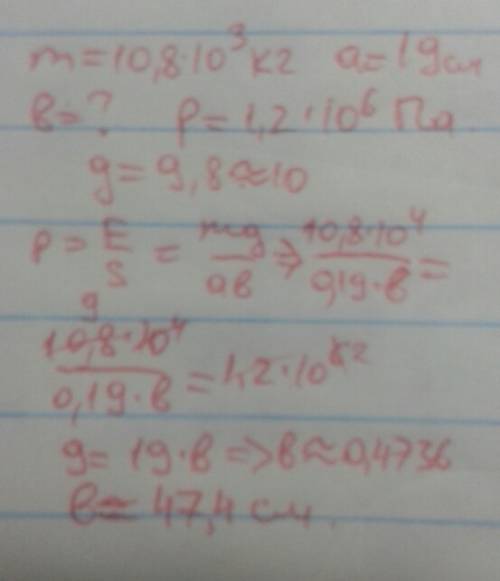 m=10,8·10³ кг a=19см
в=? P=1,2·10⁶ Па
g=9,8≈10
P=F/S=mg/aв⇒10,8·10⁴/0,19·в=
9
10,8·10⁴/0,19·в=1,2·10⁶ ²
9=19·в=>в≈0,4736
в≈47,4см